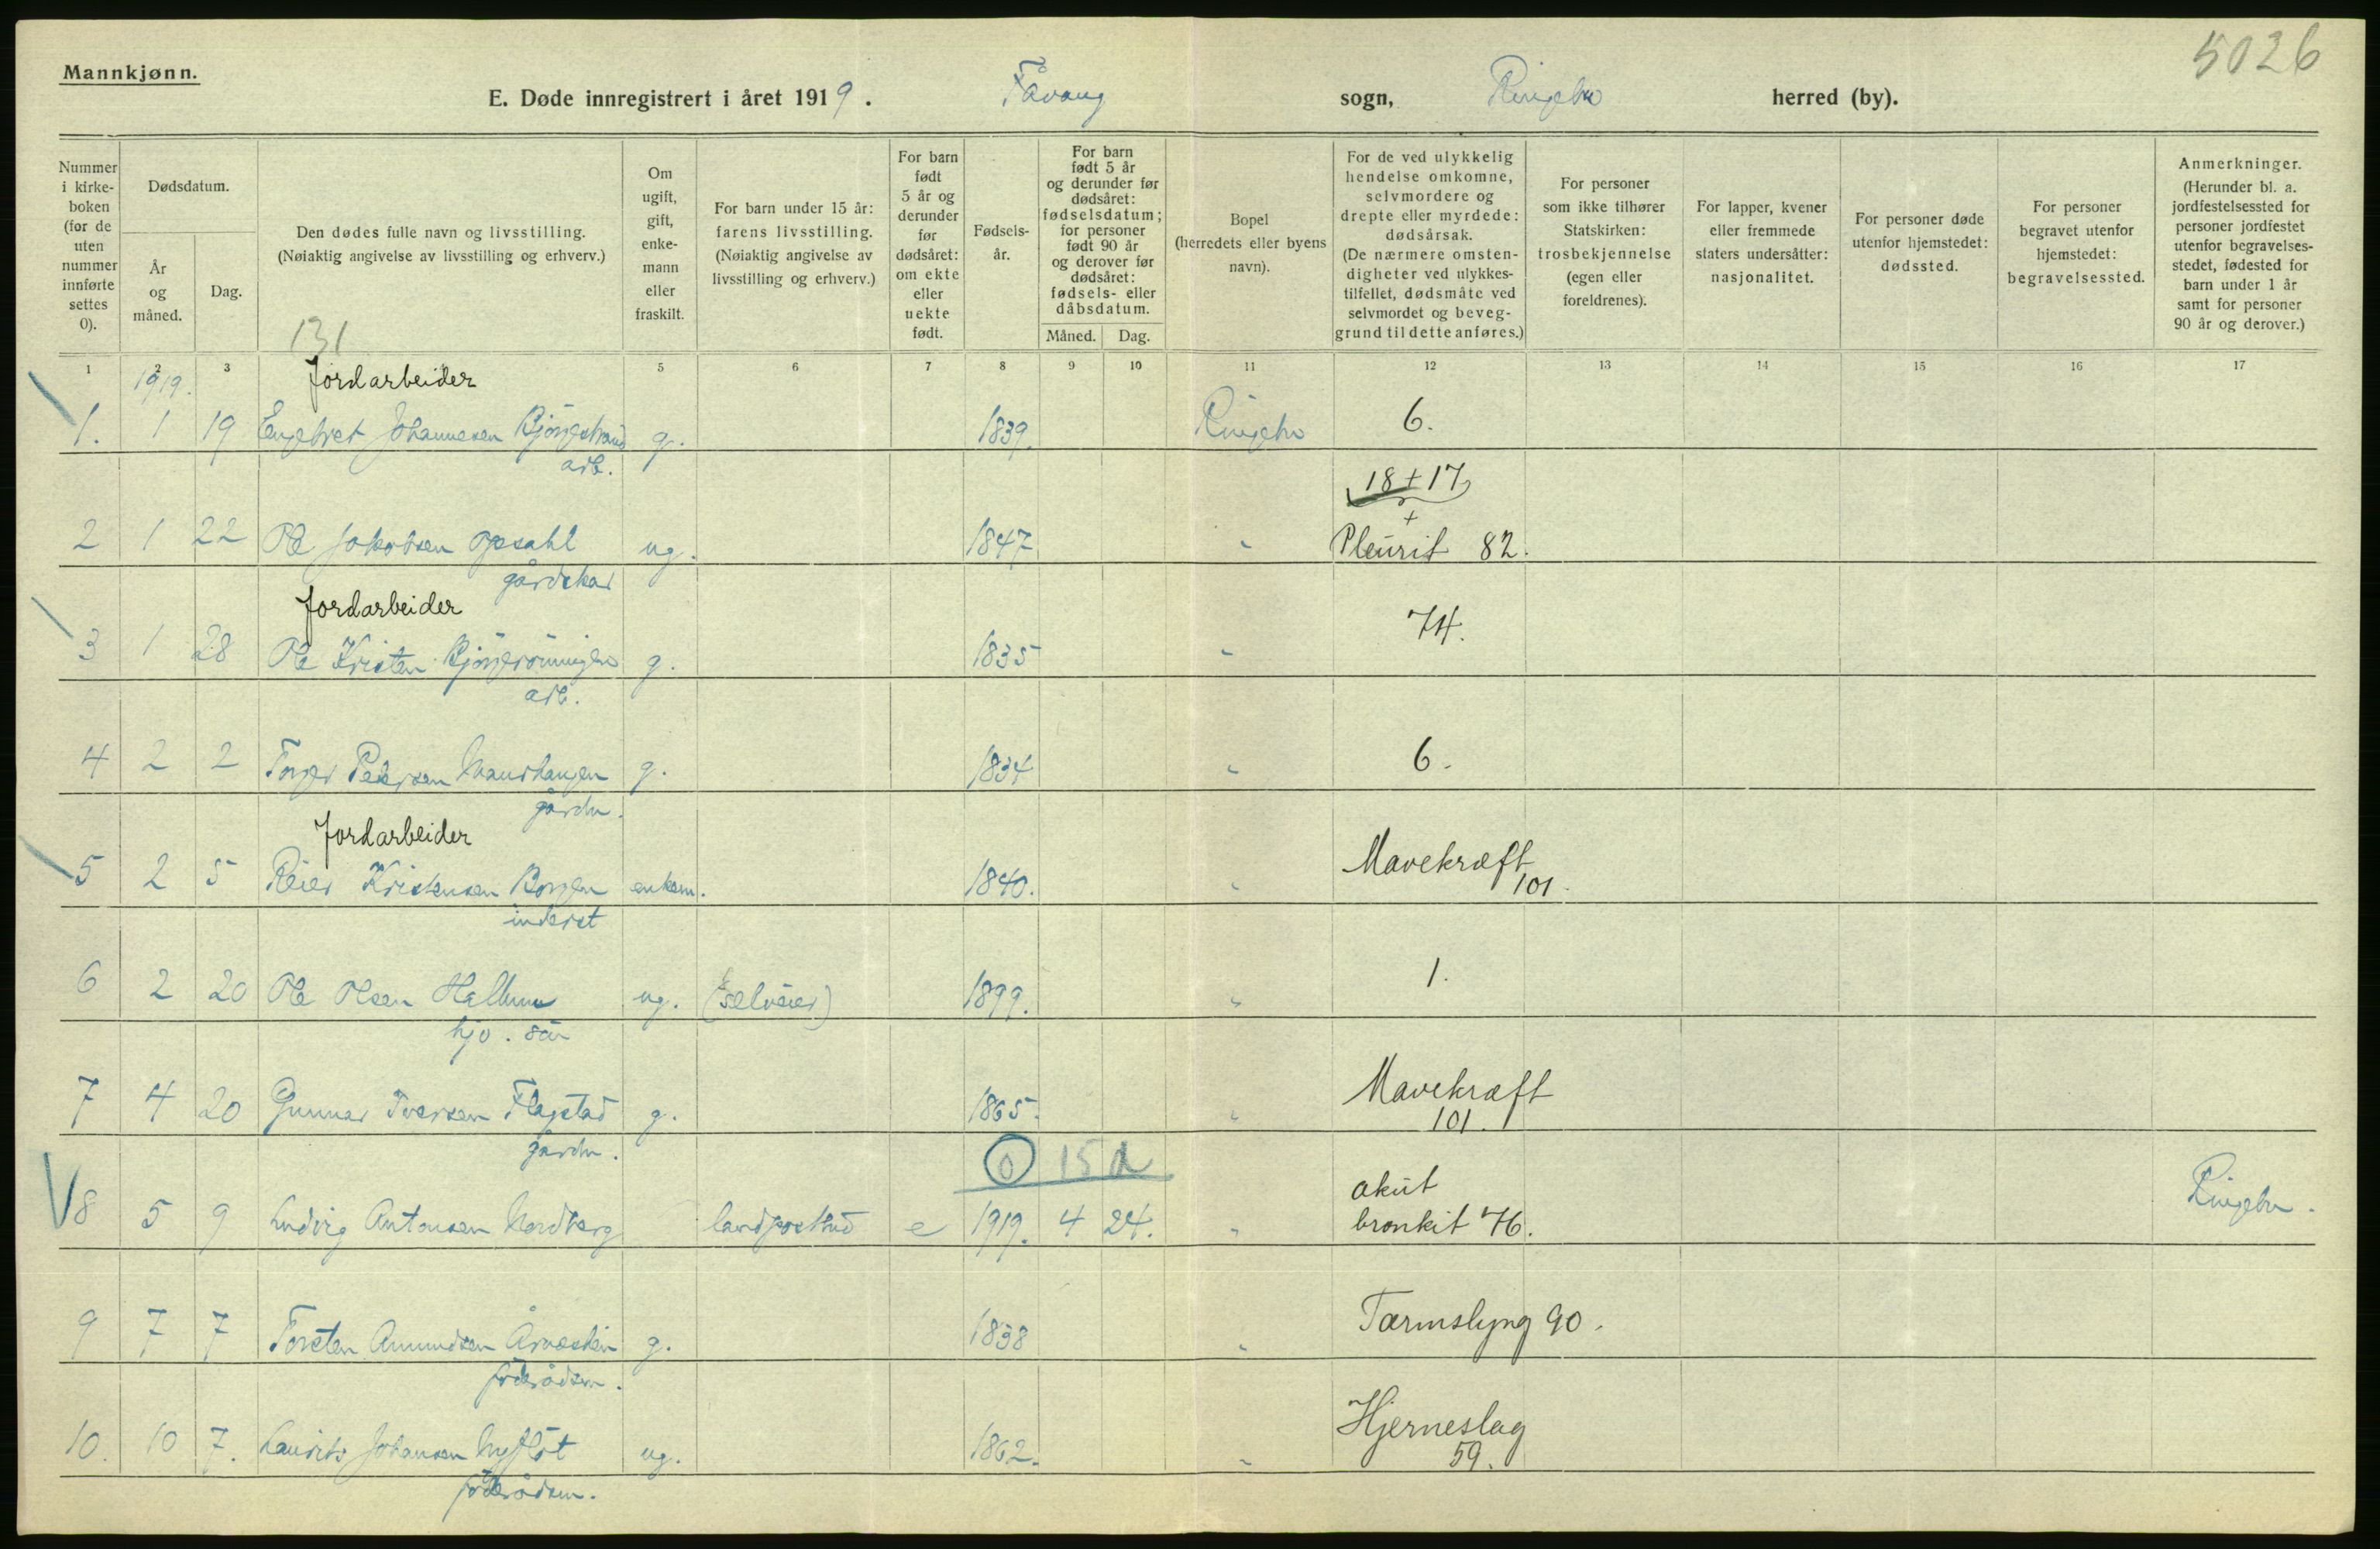 5026
Mannkjønn.
E. Døde innregistrert i året 1919. Fåvang sogn, Ringebu herred (by).
Nummer i kirke-boken (for de uten nummer innførte settes 0).
Dødsdatum.
År og måned.
Dag.
Den dødes fulle navn og livsstilling.
(Nøiaktig angivelse av livsstilling og erhverv.)
131
Om ugift, gift, enke-mann eller fraskilt.
For barn under 15 år: farens livsstilling.
(Nøiaktig angivelse av livsstilling og erhverv.)
For barn født 5 år og derunder før dødsåret: om ekte eller uekte født.
Fødsels-år.
For barn født 5 år og derunder før dødsåret: fødselsdatum; for personer født 90 år og derover før dødsåret: fødsels- eller dåbsdatum.
Måned. Dag.
Bopel (herredets eller byens navn).
For de ved ulykkelig hendelse omkomne, selvmordere og drepte eller myrdede: dødsårsak.
(De nærmere omsten-digheter ved ulykkes-tilfellet, dødsmåte ved selvmordet og beveg-grund til dette anføres.)
For personer som ikke tilhører Statskirken: trosbekjennelse (egen eller foreldrenes).
For lapper, kvener eller fremmede staters undersåtter: nasjonalitet.
For personer døde utenfor hjemstedet: dødssted.
For personer begravet utenfor hjemstedet: begravelsessted.
Anmerkninger.
(Herunder bl. a. jordfestelsessted for personer jordfestet utenfor begravelses-stedet, fødested for barn under 1 år samt for personer 90 år og derover.)
1 2 3 5 6 7 8 9 10 11 12 13 14 15 16 17
1919.
Jordarbeider
1. 1 19 Engebret Johannesen Bjørgestrand g. 1839. Ringebu 6.
arb.
18 + 17
+
2 1 22 Ole Jakobsen Opsahl ug. 1847 " Pleurit 82.
gårdskar
Jordarbeider
3 1 28 Ole Kristen Bjørgerønningen g. 1835 " 74.
arb.
4 2 2 Torger Pedersen g. 1834 " 6.
gårdm.
Jordarbeider
5 2 5 Reier Kristensen Borgen enkem. 1840. " Mavekræft 101.
inderst
6 2 20 Ole Olsen ug. (selveier) 1899. " 1.
hjv. søn
7 4 20 Gunnar Iversen Flagstad g. 1865. " Mavekræft
101.
gårdm.
0 15 d
akut
8 5 9 Ludvig Antonsen Nordberg landpostbud e 1919. 4 24. " bronkit 76. Ringebu.
9 7 7 Torsten Amundsen g. 1838 " Tarmslyng 90.
føderådsm.
10. 10 7. Laurits Johansen Nyfløt ug. 1862. " Hjerneslag
59.
føderådsm.